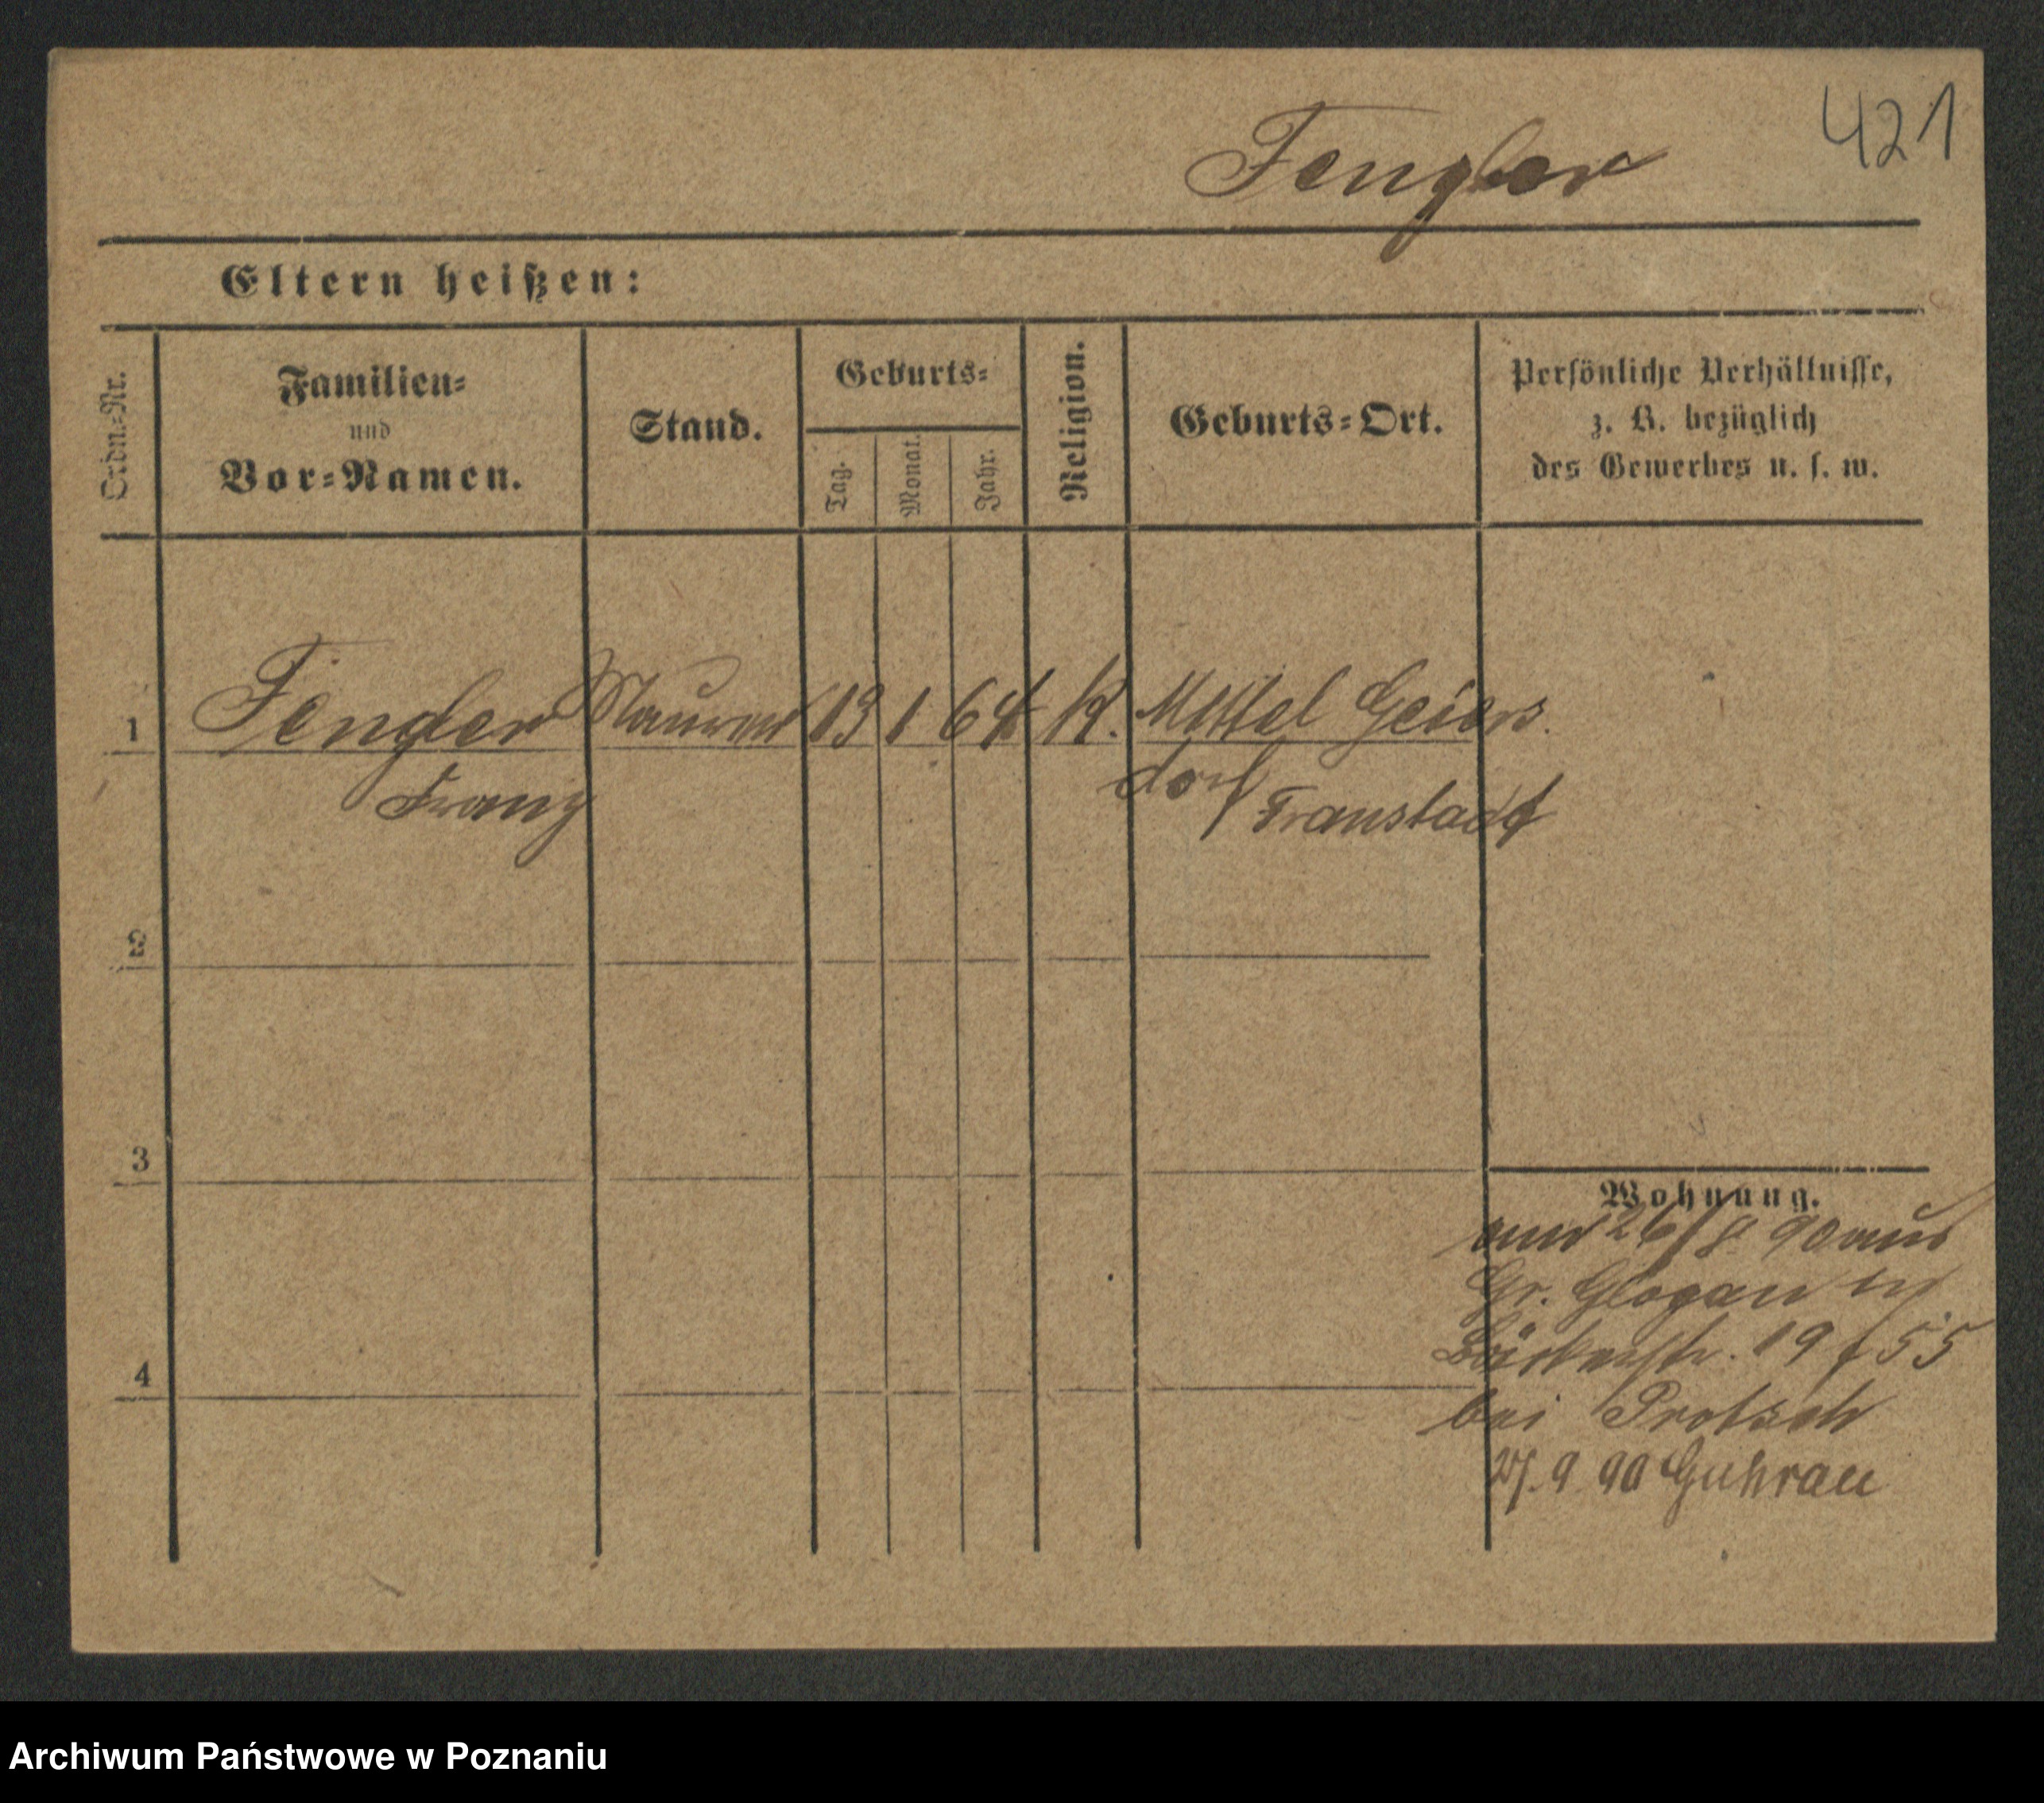 421
Fengler
Eltern heißen:
Ordn.-Nr.
Familien-
und
Vor-Namen.
Stand.
Geburts-
Tag.
Monat.
Jahr.
Religion.
Geburts-Ort.
Persönliche Verhältnisse,
z. B. bezüglich
des Gewerbes u. s. w.
1 Fengler Maurer 13 1 64 K. Mittel Geiers.
dorf Fraustadt
Franz
2
3
4
Wohnung.
26/8 90 aus
Gr. Glogau
Bäckerstr. 19 55
bei Protsch
27. 9 90 Guhrau
Archiwum Państwowe w Poznaniu